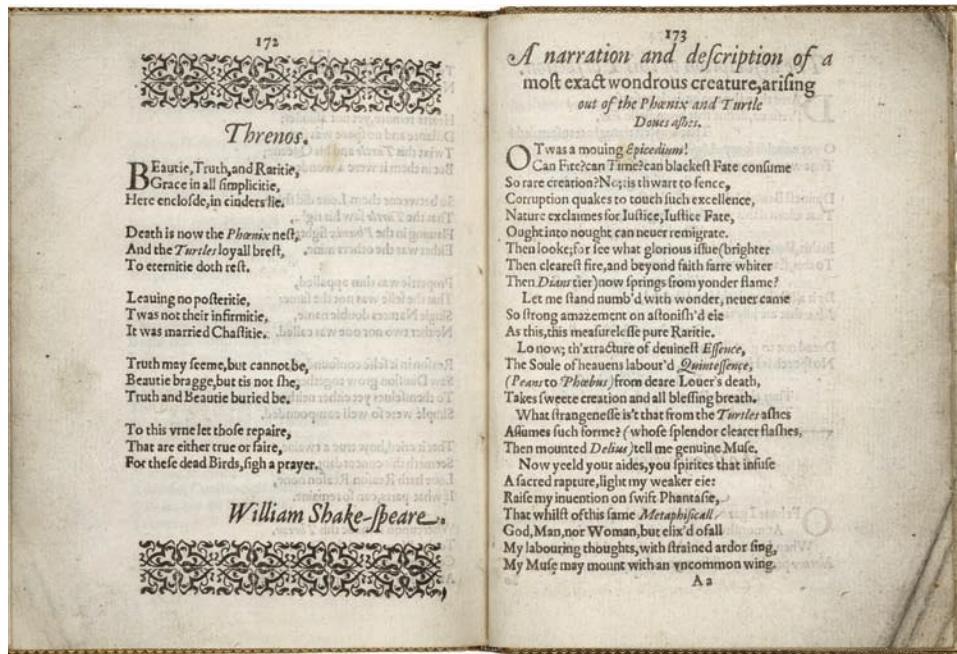 172
Threnos.
BEautie, Truth, and Raritie,
Grace in all simplicitie,
Here enclosde, in cinders lie.
Death is now the Phœnix nest,
And the Turtles loyall brest,
To eternitie doth rest.
Leauing no posteritie,
Twas not their infirmitie,
It was married Chastitie.
Truth may seeme, but cannot be,
Beautie bragge, but tis not she,
Truth and Beautie buried be.
To this vrne let those repaire,
That are either true or faire,
For these dead Birds, sigh a prayer.
William Shake-speare.
173
A narration and description of a
most exact wondrous creature, arising
out of the Phœnix and Turtle
Doues ashes.
O Twas a mouing Epicedium!
Can Fire? can Time? can blackest Fate consume
So rare creation? No; tis thwart to sence,
Corruption quakes to touch such excellence,
Nature exclaimes for Iustice, Iustice Fate,
Ought into nought can neuer remigrate.
Then looke; for see what glorious issue (brighter
Then clearest fire, and beyond faith farre whiter
Then Dians tier) now springs from yonder flame?
Let me stand numb'd with wonder, neuer came
So strong amazement on astonish'd eie
As this, this measurelesse pure Raritie.
Lo now; th'xtracture of deuinest Essence,
The Soule of heauens labour'd Quintessence,
(Peans to Phœbus) from deare Louer's death,
Takes sweete creation and all blessing breath.
What strangenesse is't that from the Turtles ashes
Assumes such forme? (whose splendor clearer flashes,
Then mounted Delius) tell me genuine Muse.
Now yeeld your aides, you spirites that infuse
A sacred rapture, light my weaker eie:
Raise my inuention on swift Phantasie,
That whilst of this same Metaphisicall
God, Man, nor Woman, but elix'd of all
My labouring thoughts, with strained ardor sing,
My Muse may mount with an vncommon wing.
A a